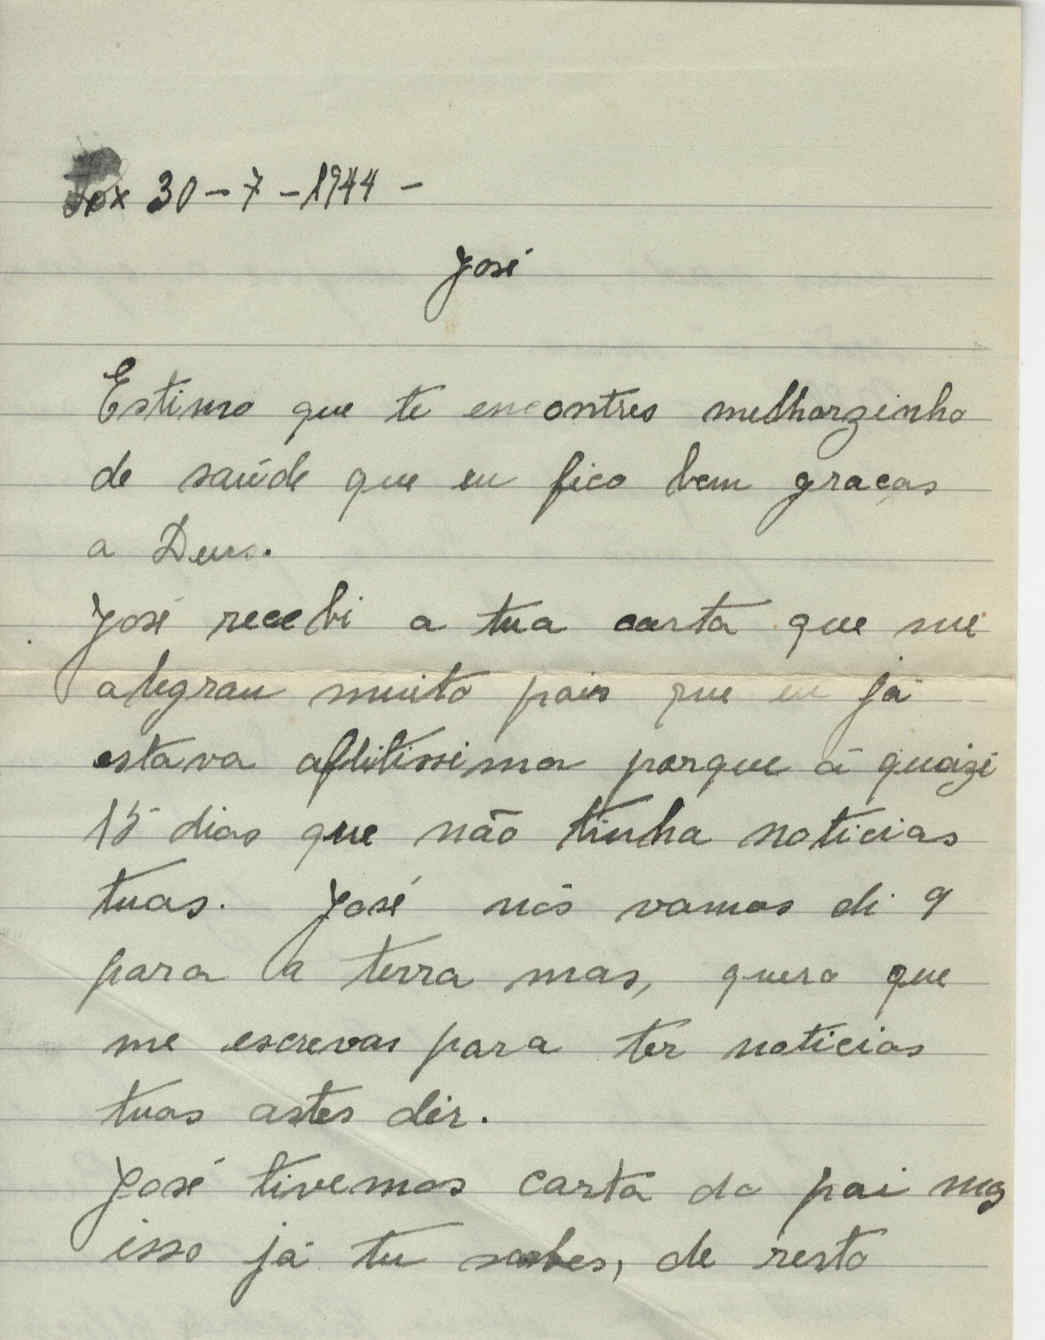 Lex 30-7-1944-
José
Estimo que te encontres melhorzinho
de saúde que eu fico bem graças
a Deus.
José recebi a tua carta que me
alegrau muito pois que eu já
estava aflitissima porque á quazi
15 dias que não tinha noticias
tuas. José nós vamos di 9
para a terra mas, quero que
me escrevas para ter noticias
tuas astes dir.
José tivemos carta do pai mas
isso já tu sabes, de resto